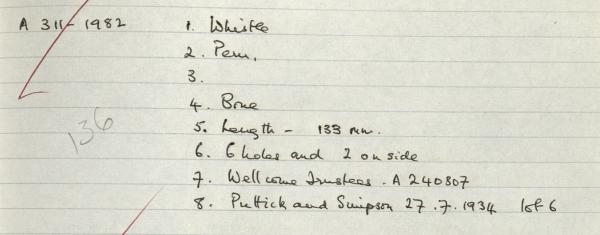 A 311-1982 1. Whistle
2. Peru.
3.
4. Bone
5. Length - 133 mm.
136
6. 6 holes and 2 on side
7. Wellcome Trustees. A 240807
8. Puttick and Simpson 27.7.1934 lot 6